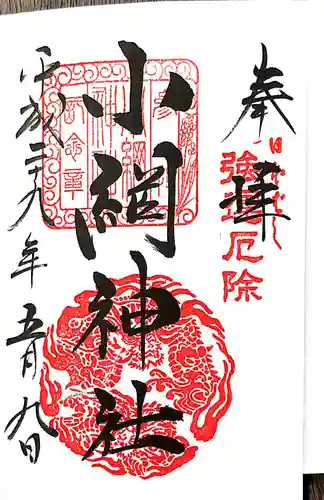 奉拝
強運厄除
小網神社
平成二十九年五月九日